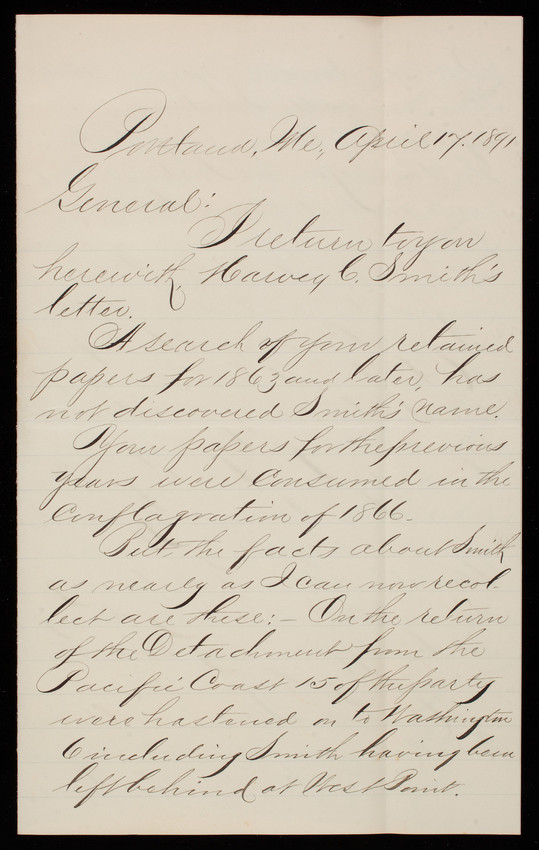 Portland, Me., April 17. 1891
General:
I return to you
herewith, Harvey C. Smith's
letter.
A search of your retained
papers for 1863 and later, has
not discovered Smith's name.
Your papers for the previous
years were consumed in the
conflagration of 1866.
But the facts about Smith
as nearly as I can now recol-
lect are these:- On the return
of the Detachment from the
Pacific Coast 15 of the party
were hastened on to Washington
6 including Smith having been
left behind at West Point.